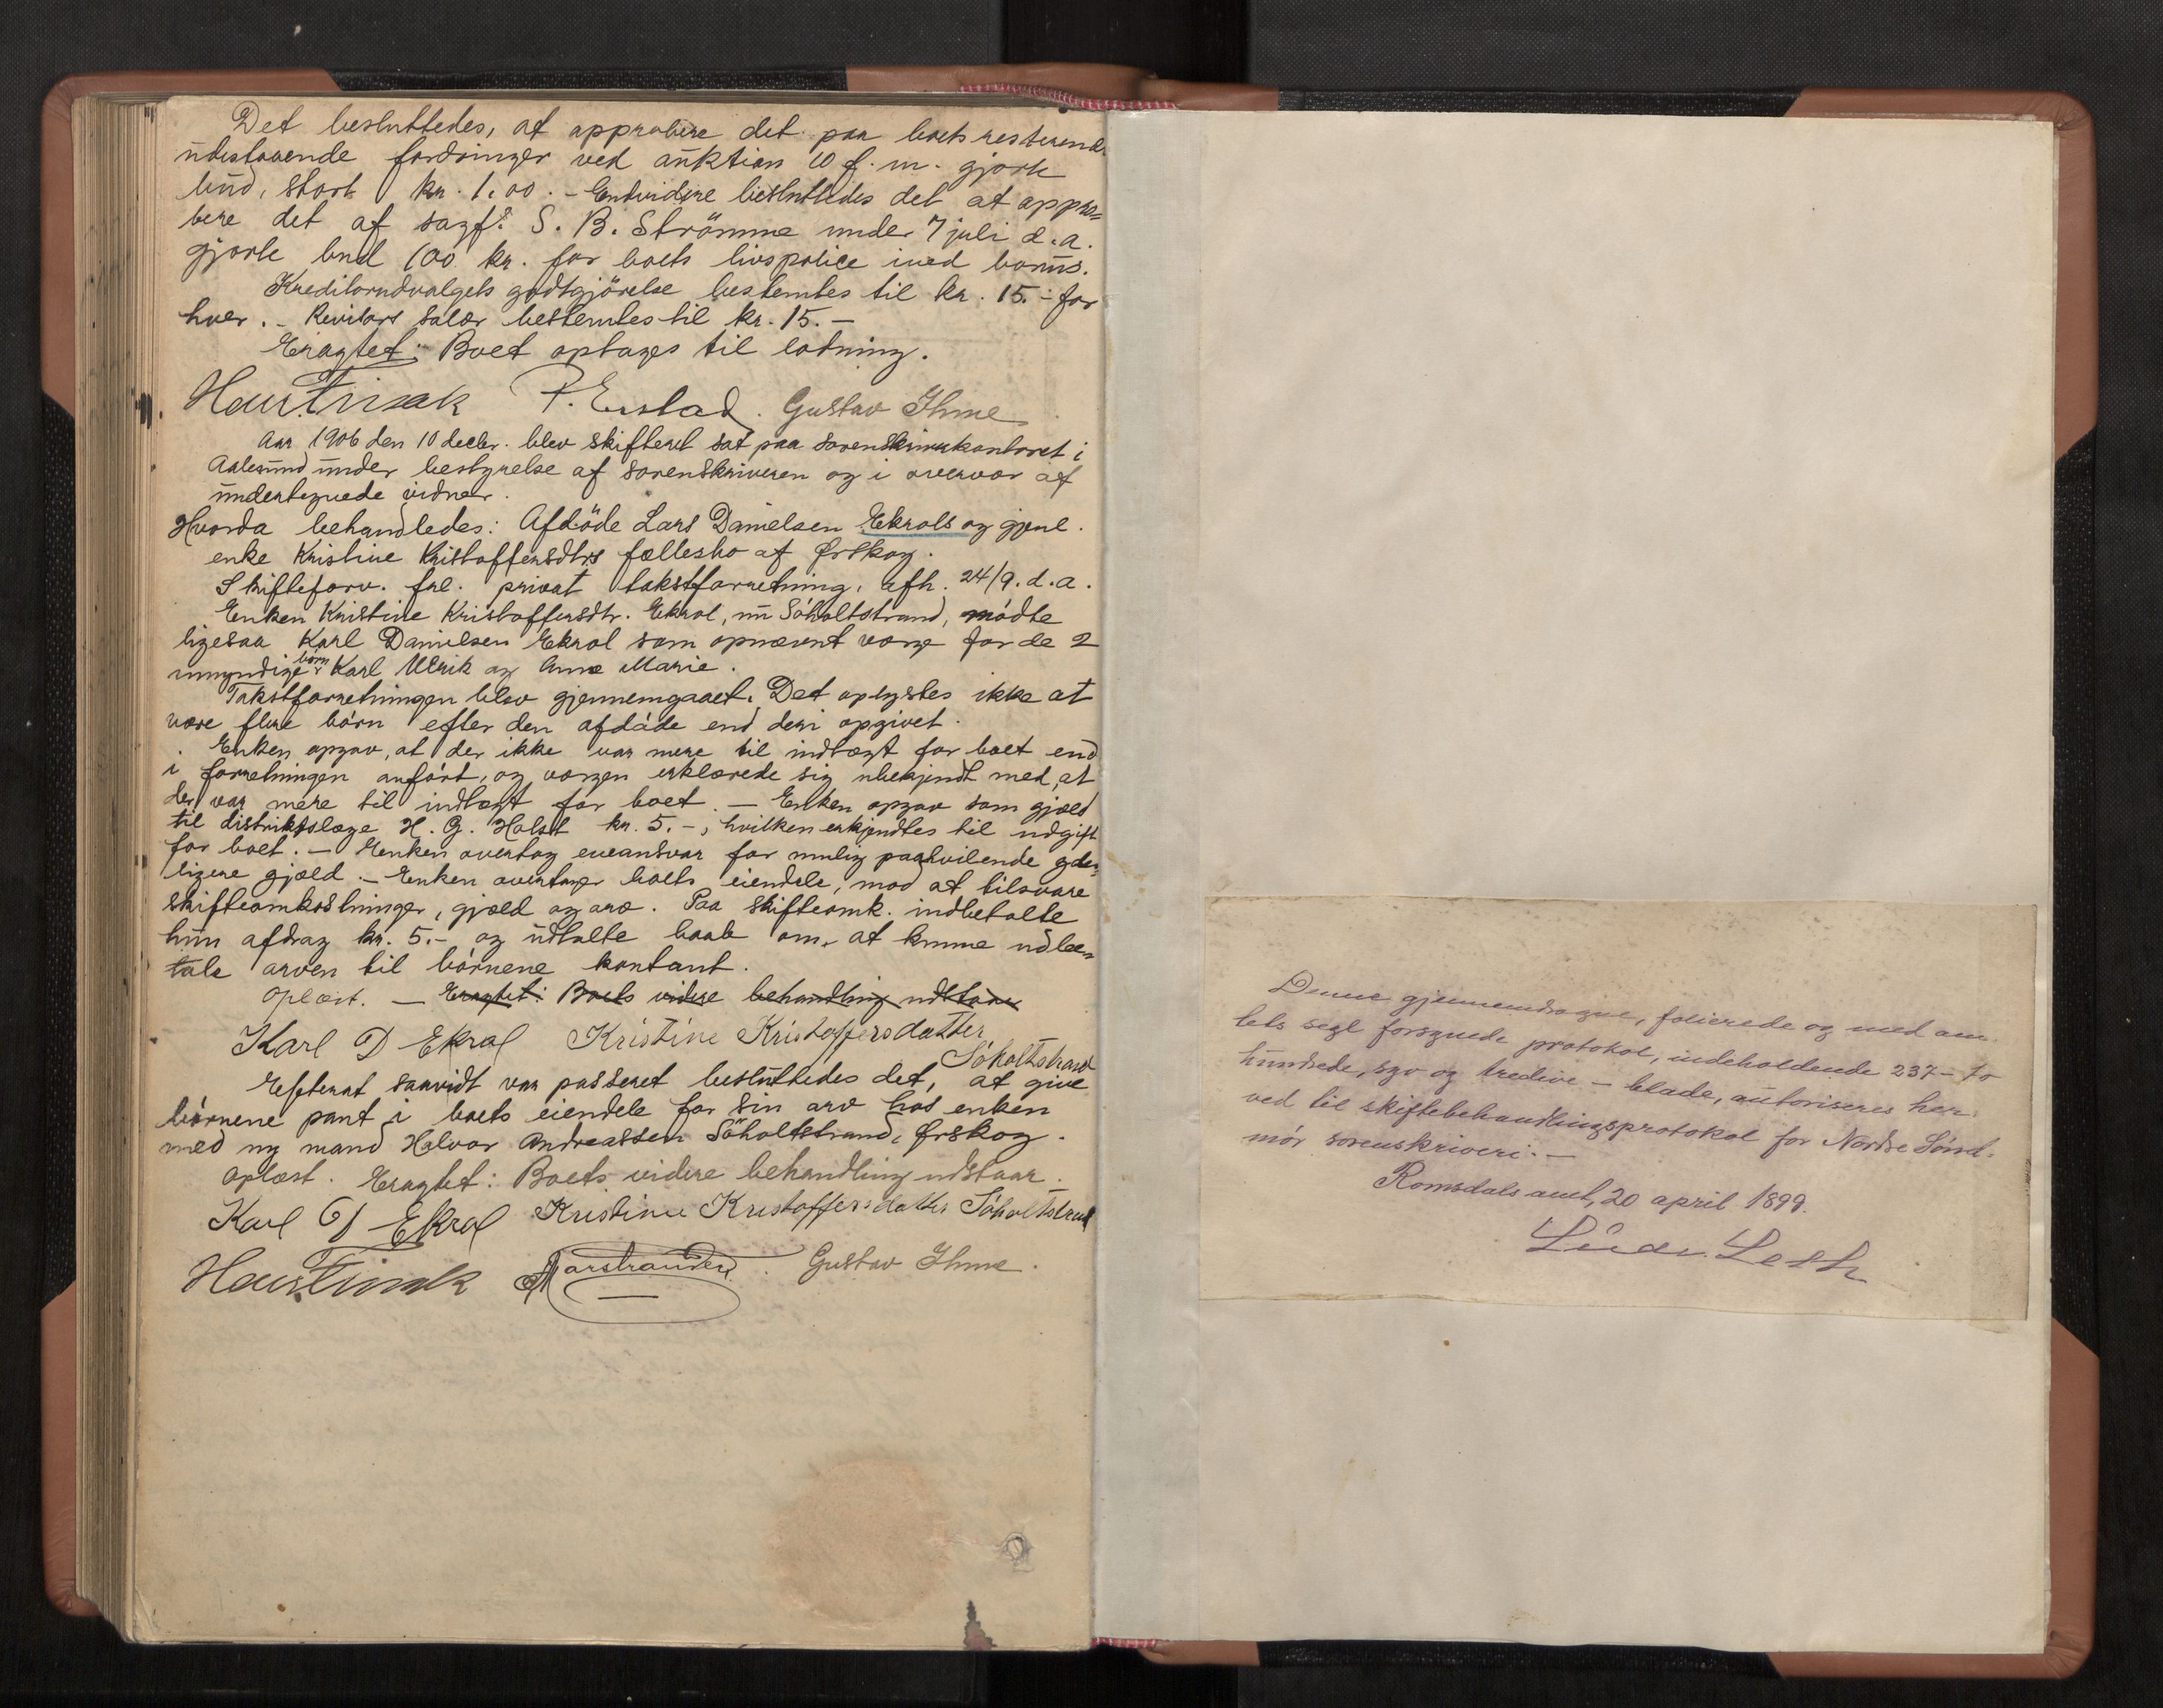 Det besluttedes, at approbere det paa boets resterende
udestaaende fordringer ved auktion 10 f. m. gjorte
bud, stort kr. 1.00. - Endvidere besluttedes det at appro=
bere det af sagf. S. B. Strömme under 7 juli d. a.
gjorte bud 100 kr. for boets livspolice med bonus.
Kreditorudvalgets godtgjörelse bestemtes til kr. 15.- for
hver. - Revisors salær bestemtes til kr. 15. -
Eragtet: Boet optages til lodning.
P. Erstad. Gustav Ihme
Aar 1906 den 10 decbr. blev skifteret sat paa sorenskriverkontoret i
Aalesund under bestyrelse af sorenskriveren og i overvær af
undertegnede vidner.
Hvorda behandledes: Afdöde Lars Danielsen Ekrols og gjenl.
enke Kristine Kristoffersdtrs fællesbo af Ørskog.
Skifteforv. frl. privat takstforretning, afh. 24/9. d. a.
Enken Kristine Kristoffersdtr. Ekrol, nu Söholtstrand, mödte
ligesaa Karl Danielsen Ekrol som opnævnt værge for de 2
umyndige börn Karl Ulrik og Anne Marie.
Takstforretningen blev gjennemgaaet. Det oplystes ikke at
være flere börn efter den afdöde end deri opgivet.
Enken opgav, at der ikke var mere til indtægt for boet end
i forretningen anfört, og værgen erklærede sig ubekjendt med, at
der var mere til indtægt for boet. - Enken opgav som gjæld
til distriktslæge H. G. Holst kr. 5. -, hvilken erkjendtes til udgift
for boet. - Enken overtog eneansvar for mulig paahvilende yder=
ligere gjæld. - Enken overtager boets eiendele, mod at tilsvare
skifteomkostninger, gjæld og arv. Paa skifteomk. indbetalte
hun afdrag kr. 5.- og udtalte haab om, at kunne udbe=
tale arven til börnene kontant.
Oplæst. - Eragtet: Boets videre behandling udstaar
Karl D Ekrol Kristine Kristoffersdatter
Söholtstrand
Efterat saavidt var passeret besluttedes det, at give
börnene pant i boets eiendele for sin arv hos enken
med ny mand Halvor Andreassen Söholtstrand, Ørskog.
Oplæst. Eragtet: Boets videre behandling udstaar.
Karl D Ekrol Kristine Kristoffersdatter Söholtstrand
Marstrander. Gustav Ihme.
Denne gjennemdragne, folierede og med am-
tets segl forsynede protokol, indeholdende 237 - to
hundrede, syv og tredive - blade, autoriseres her-
ved til skiftebehandlingsprotokol for Nordre Sönd-
mör sorenskriveri. -
Romsdals amt, 20 april 1899.